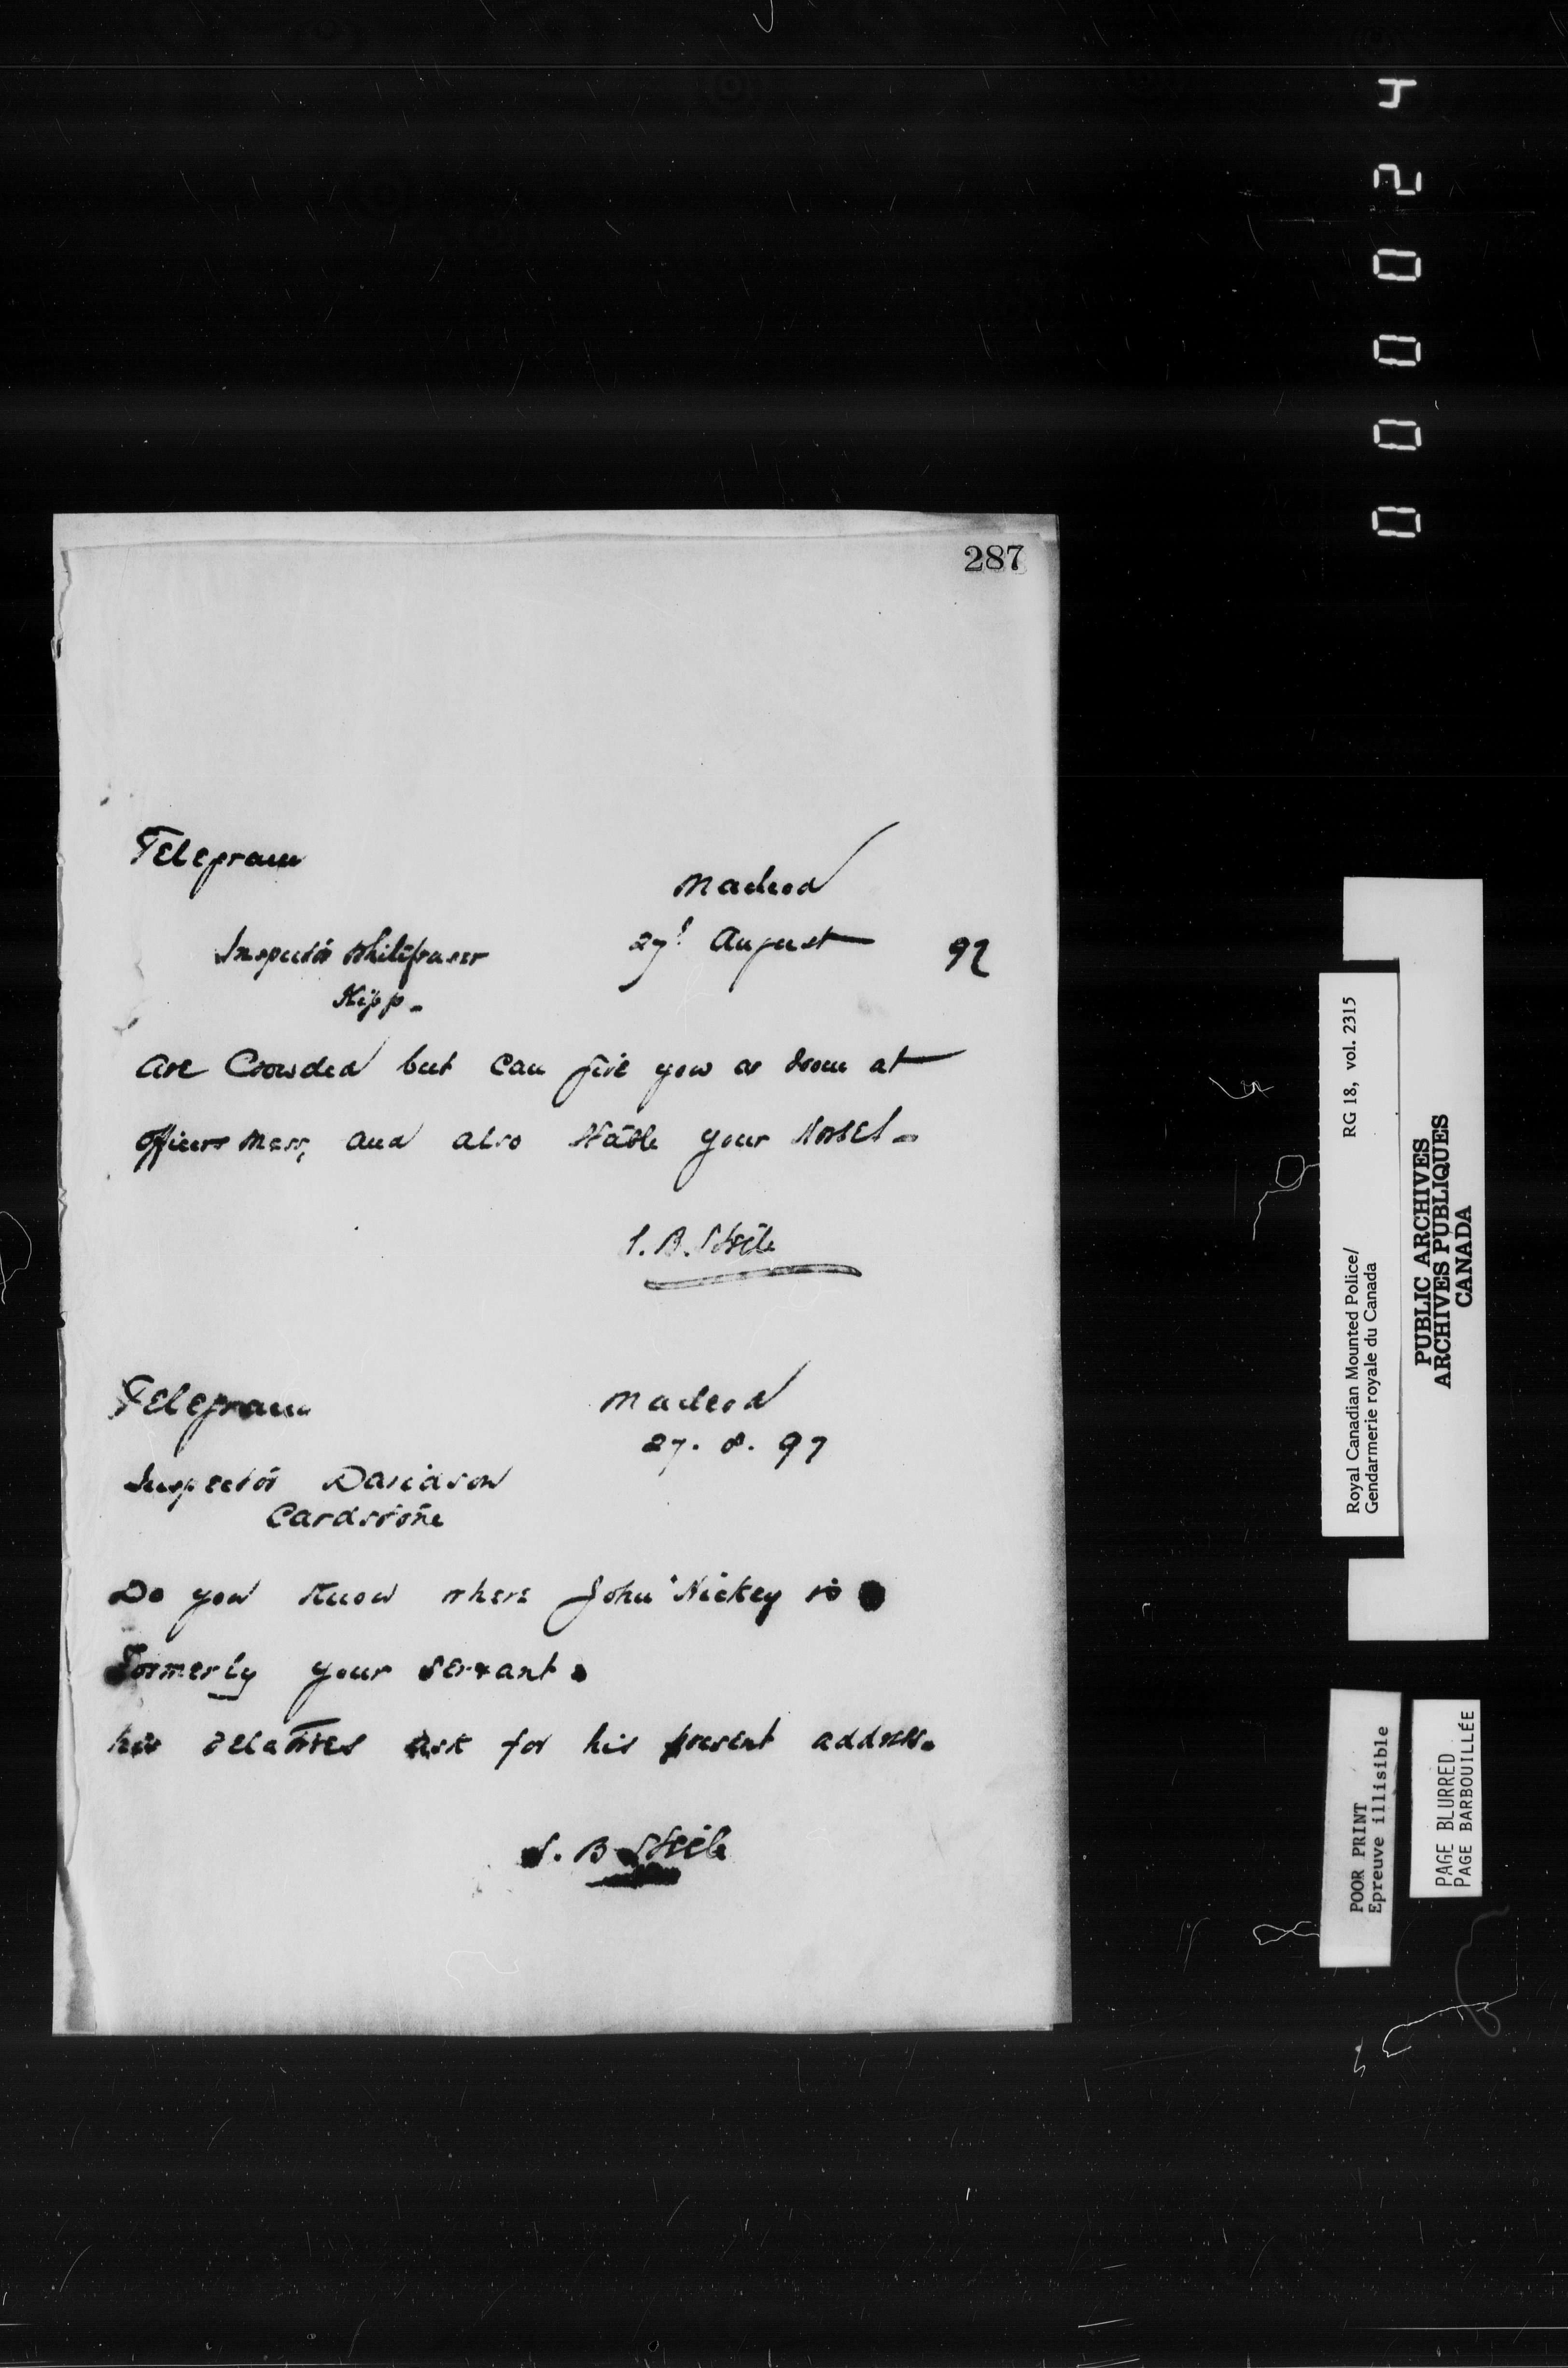 287
Telegram
Macleod
Inspector 27th August 97
Kipp.
are Crowded but can give you a room at
officers mess, and also stable your horses.
S. B. Steele
Telegram Macleod
27. 8. 97
Inspector Davidson
Cardstone
Do you know where John Hickey is
formerly your servant.
his relatives ask for his present address.
S. B. Steele
000024
Royal Canadian Mounted Police/ RG 18, vol. 2315
Gendarmerie royale du Canada
PUBLIC ARCHIVES
ARCHIVES PUBLIQUES
CANADA
POOR PRINT
Epreuve illisible
PAGE BLURRED
PAGE BARBOUILLÉE